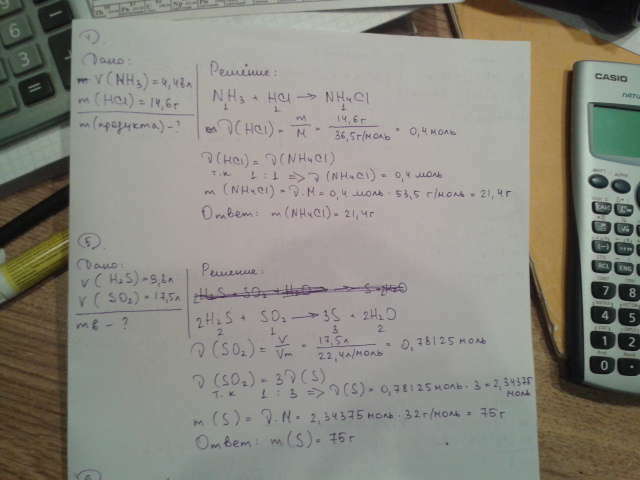 1)
Дано:
V(NH3)=4,48л
m(HCl)=14,6г
m(продукта)-?
Решение:
NH3 + HCl → NH4Cl
1 1 1
ν(HCl) = m/M = 14,6г/36,5г/моль = 0,4моль
ν(HCl) = ν(NH4Cl)
т.к 1 : 1 => ν(NH4Cl) = 0,4 моль
m(NH4Cl) = ν.M = 0,4 моль · 53,5 г/моль = 21,4г
Ответ: m(NH4Cl) = 21,4г
5)
Дано:
V(H2S)=
V(SO2)=17,5л
mв - ?
Решение:
2H2S + SO2 → 3S + 2H2O
2 1 3 2
ν(SO2) = V/Vm = 17,5л/22,4л/моль = 0,78125 моль
ν(SO2) = 3ν(S)
т.к 1 : 3 => ν(S) = 0,78125 моль · 3 = 2,34375
моль
m(S) = ν.M = 2,34375 моль · 32г/моль = 75г
Ответ: m(S) = 75г
CASIO
ALPHA
RCL
ENG
7
8
4
5
1
2
0